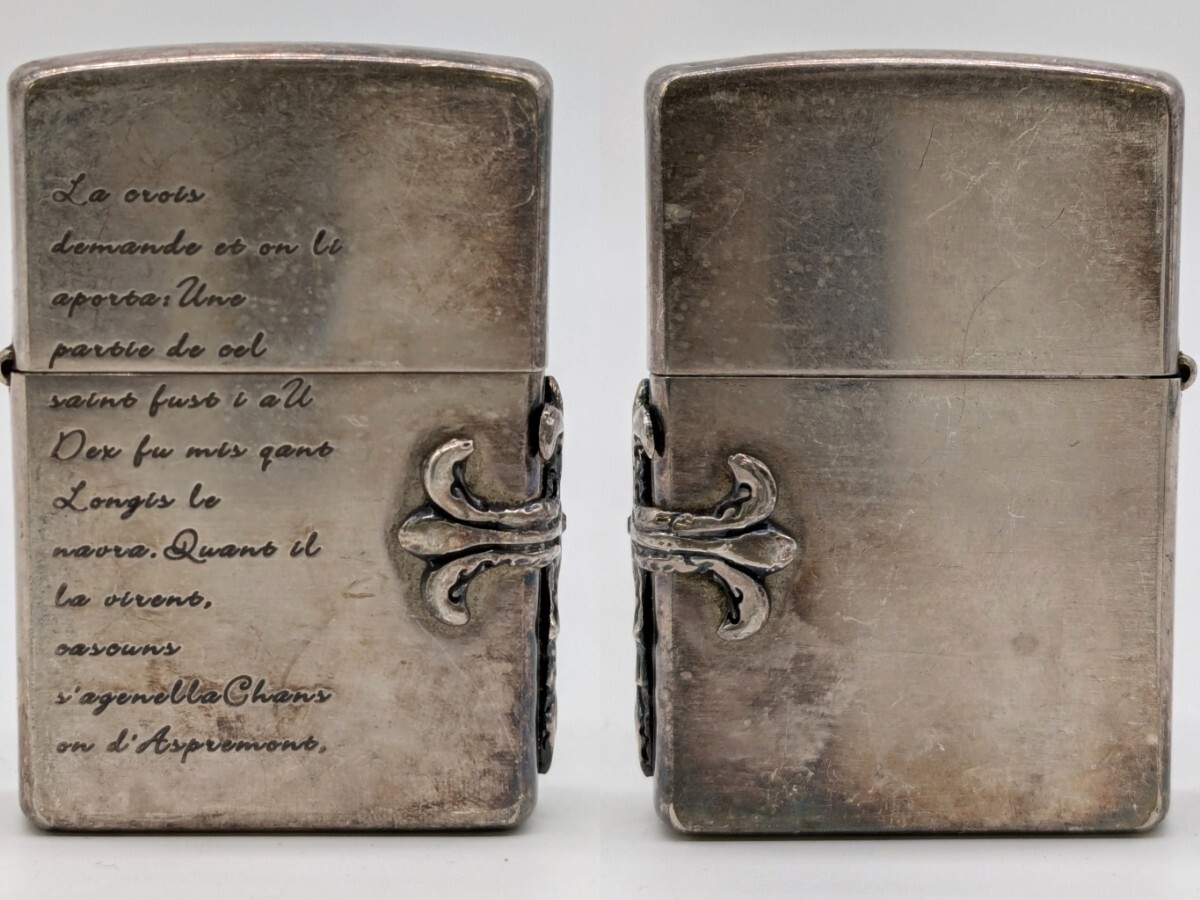 La crois
demande et on li
aporta:Une
partie de cel
saint fust i aU
Dex fu mis qant
Longis le
navra.Quant il
la virent,
casouns
s'agenellaChans
on d'Aspremont,